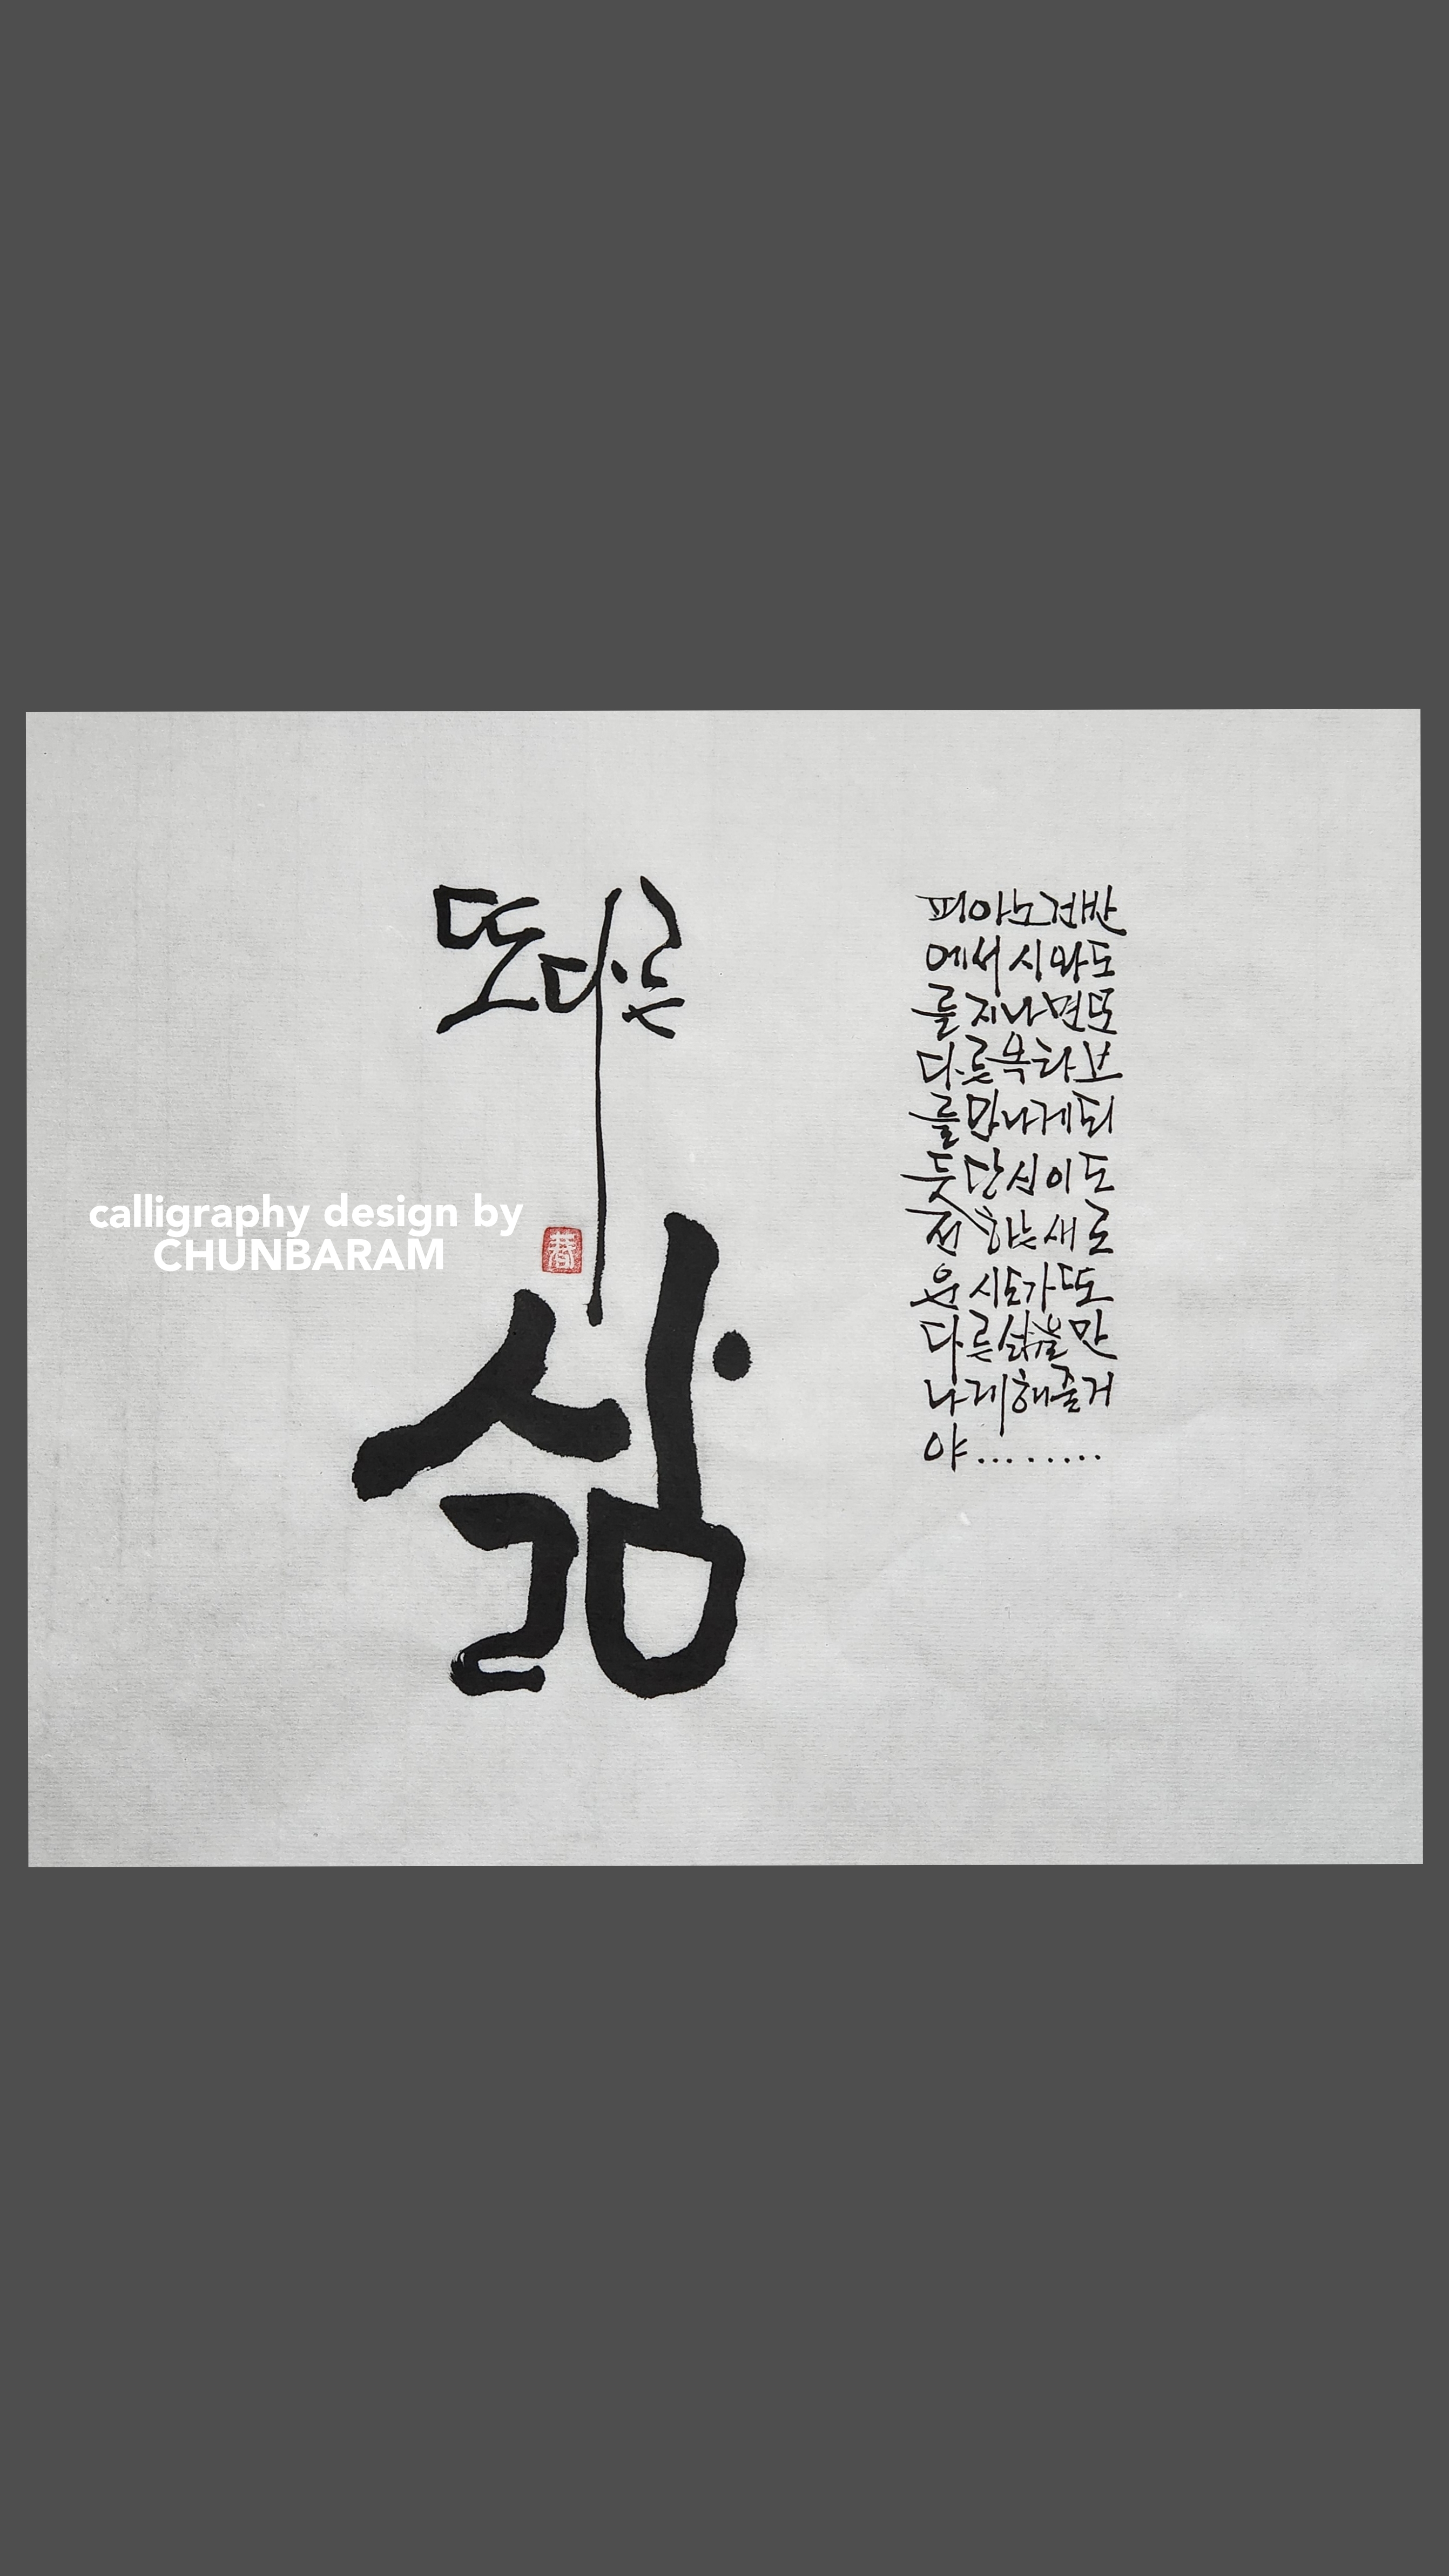 또 다른
삶
피아노건반
에서 시와도
를 지나면 또
다른 옥타브
를 만나게 되
듯 당신이 도
전하는 새로
운 시도가 또
다른 삶을 만
나게 해줄거
야........
calligraphy design by
CHUNBARAM
春